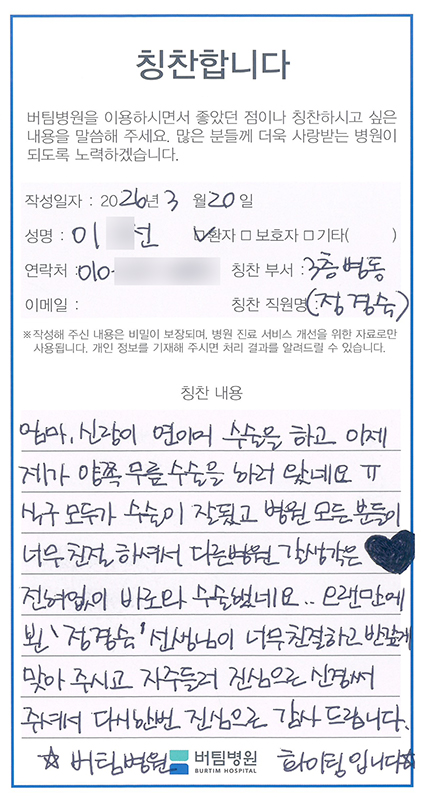 칭찬합니다
버팀병원을 이용하시면서 좋았던 점이나 칭찬하시고 싶은
내용을 말씀해 주세요. 많은 분들께 더욱 사랑받는 병원이
되도록 노력하겠습니다.
작성일자 : 2026년 3 월 20 일
성명 : 이 선 ☑환자 □보호자 □기타( )
연락처 : 010- 칭찬 부서 : 3층병동
이메일 : 칭찬 직원명 : (정경숙)
※작성해 주신 내용은 비밀이 보장되며, 병원 진료 서비스 개선을 위한 자료로만
사용됩니다. 개인 정보를 기재해 주시면 처리 결과를 알려드릴 수 있습니다.
칭찬 내용
엄마, 신랑이 연이어 수술을 하고 이제
제가 양쪽 무릎 수술을 하러 왔네요 ㅠ
식구 모두가 수술이 잘됐고 병원 모든 분들이
너무 친절하셔서 다른병원 갈생각은 ♥
전혀없이 바로와 수술했네요.. 오랜만에
뵌 '정경숙' 선생님이 너무친절하고 반갑게
맞아 주시고 자주들러 진심으로 신경써
주셔서 다시한번 진심으로 감사 드립니다.
☆ 버팀병원 버팀병원 화이팅입니다☆
BURTIM HOSPITAL